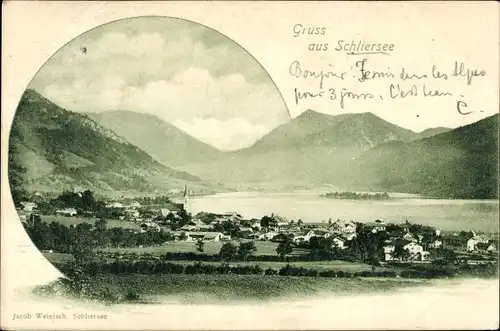 Gruss
aus Schliersee
Bonjour! dans les Alpes
pour 3 jours. C'est beau.
C.
Jacob Weinisch, Schliersee